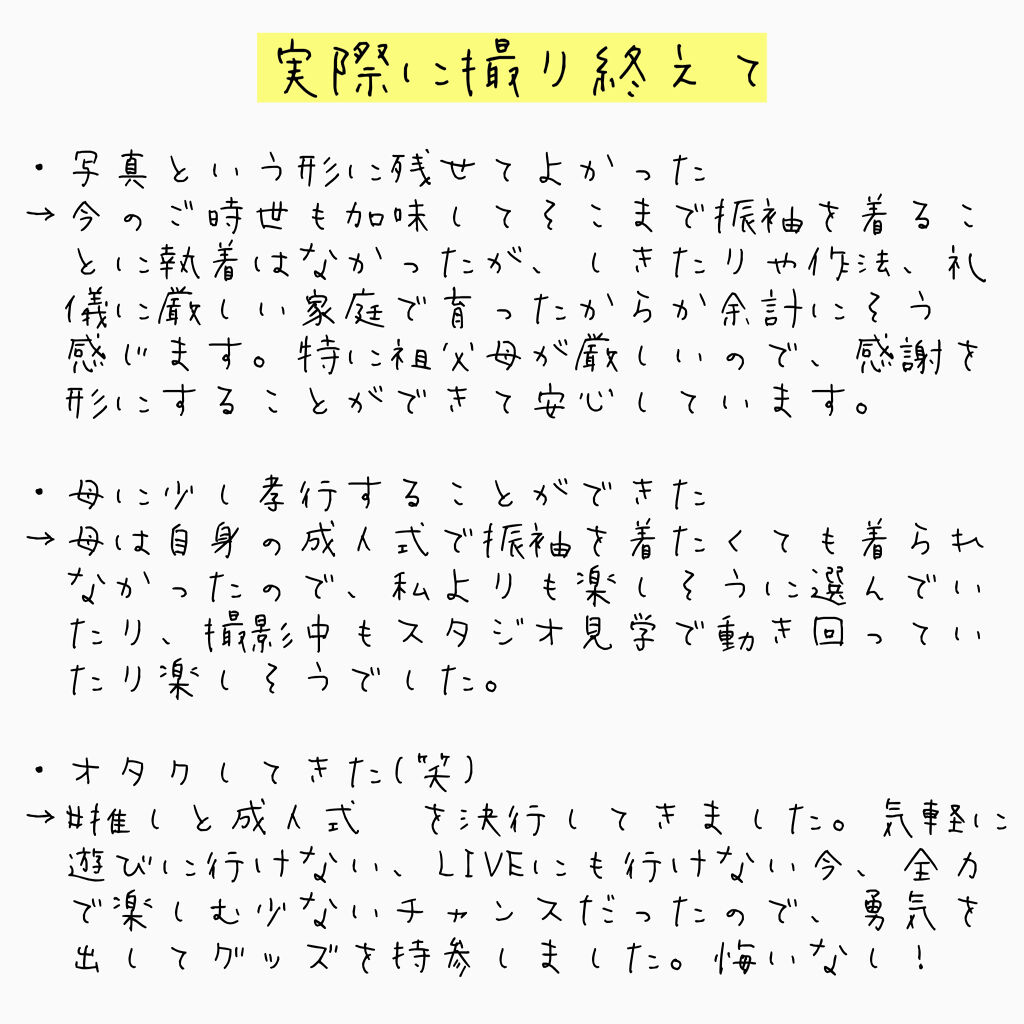 実際に撮り終えて
・写真という形に残せてよかった
→今のご時世も加味してそこまで振袖を着るこ
とに執着はなかったが、しきたりや作法、礼
儀に厳しい家庭で育ったからか余計にそう
感じます。特に祖父母が厳しいので、感謝を
形にすることができて安心しています。
・母に少し孝行することができた
→母は自身の成人式で振袖を着たくても着られ
なかったので、私よりも楽しそうに選んでい
たり、撮影中もスタジオ見学で動き回ってい
たり楽しそうでした。
・オタクしてきた(笑)
→#推しと成人式　を決行してきました。気軽に
遊びに行けない、LIVEにも行けない今、全力
で楽しむ少ないチャンスだったので、勇気を
出してグッズを持参しました。悔いなし!